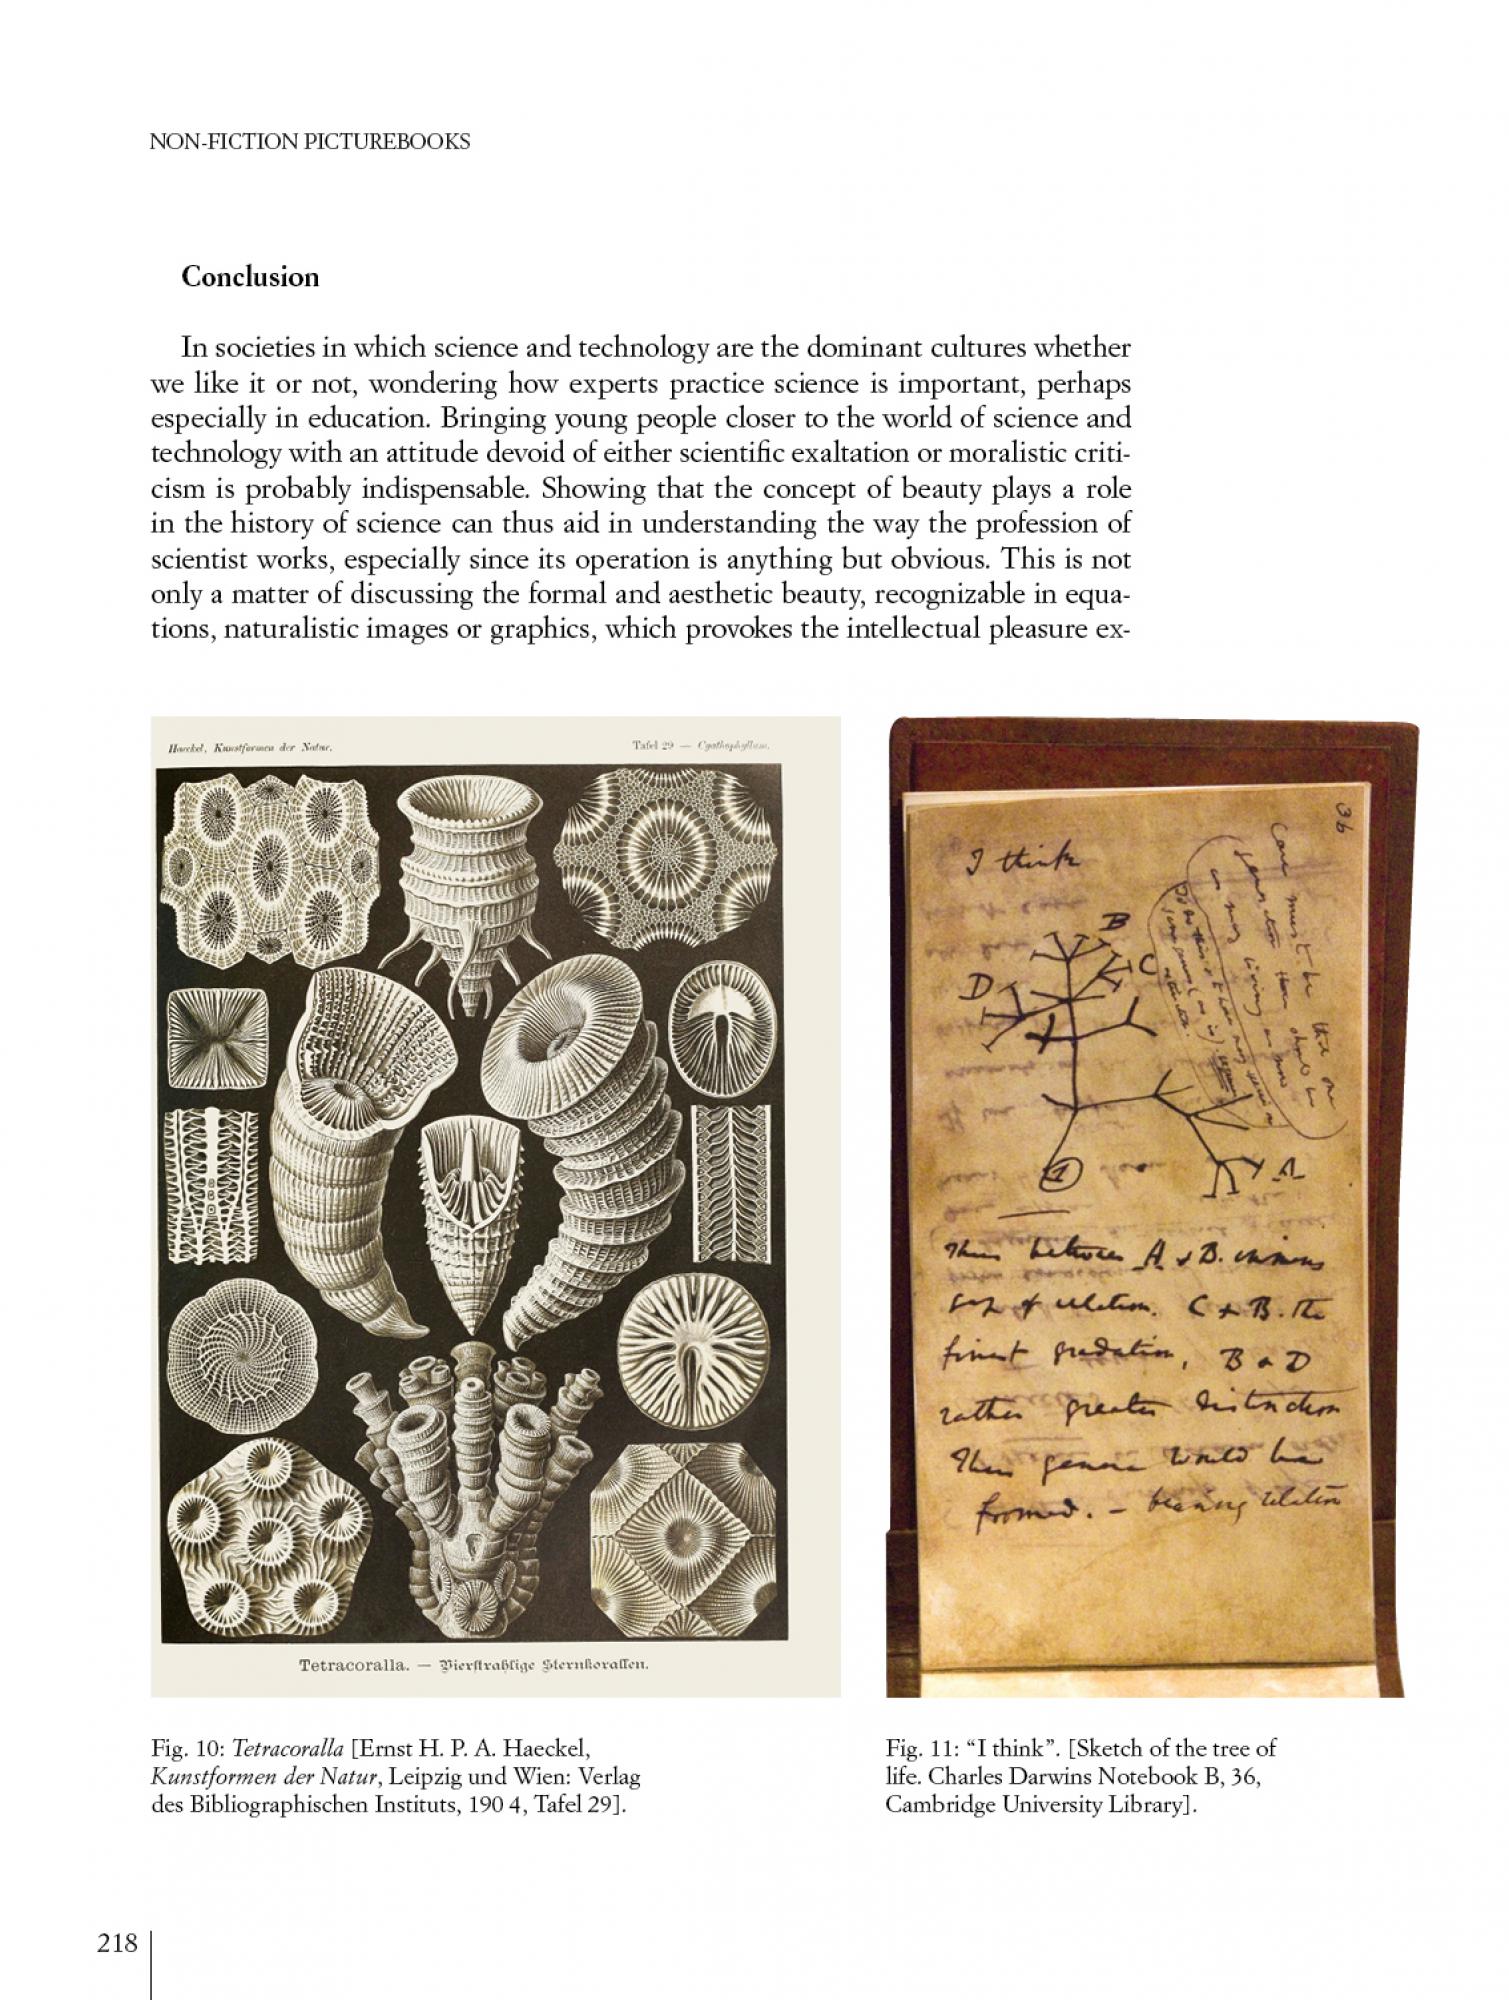 NON-FICTION PICTUREBOOKS
Conclusion
In societies in which science and technology are the dominant cultures whether
we like it or not, wondering how experts practice science is important, perhaps
especially in education. Bringing young people closer to the world of science and
technology with an attitude devoid of either scientific exaltation or moralistic criti-
cism is probably indispensable. Showing that the concept of beauty plays a role
in the history of science can thus aid in understanding the way the profession of
scientist works, especially since its operation is anything but obvious. This is not
only a matter of discussing the formal and aesthetic beauty, recognizable in equa-
tions, naturalistic images or graphics, which provokes the intellectual pleasure ex-
Haeckel, Kunstformen der Natur.
Tafel 29 — Cyathophyllum.
Tetracoralla. — Vierstrahlige Sternkorallen.
36
I think
Case must be that one
generation then should be
as many living as now
B
C
D
1
A
Thus between A & B. immens
gap of relation. C & B. the
finest gradation, B & D
rather greater distinction
Thus genera would be
formed. — bearing relation
Fig. 10: Tetracoralla [Ernst H. P. A. Haeckel,
Kunstformen der Natur, Leipzig und Wien: Verlag
des Bibliographischen Instituts, 190 4, Tafel 29].
Fig. 11: “I think”. [Sketch of the tree of
life. Charles Darwins Notebook B, 36,
Cambridge University Library].
218